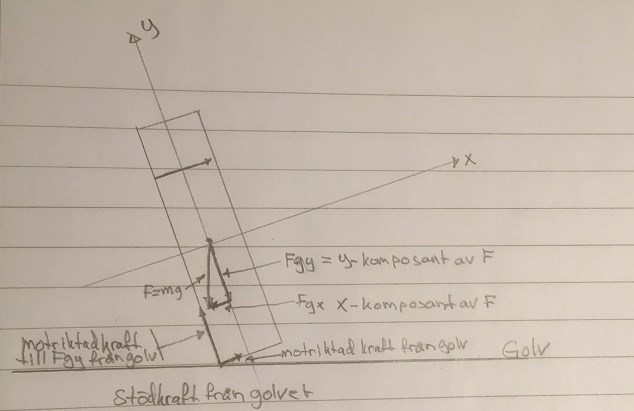 y
x
Fgy = y-komposant av F
F=mg
Fgx x-komposant av F
motriktad kraft
till Fgy från golv
motriktad kraft från golv
Golv
Stödkraft från golvet